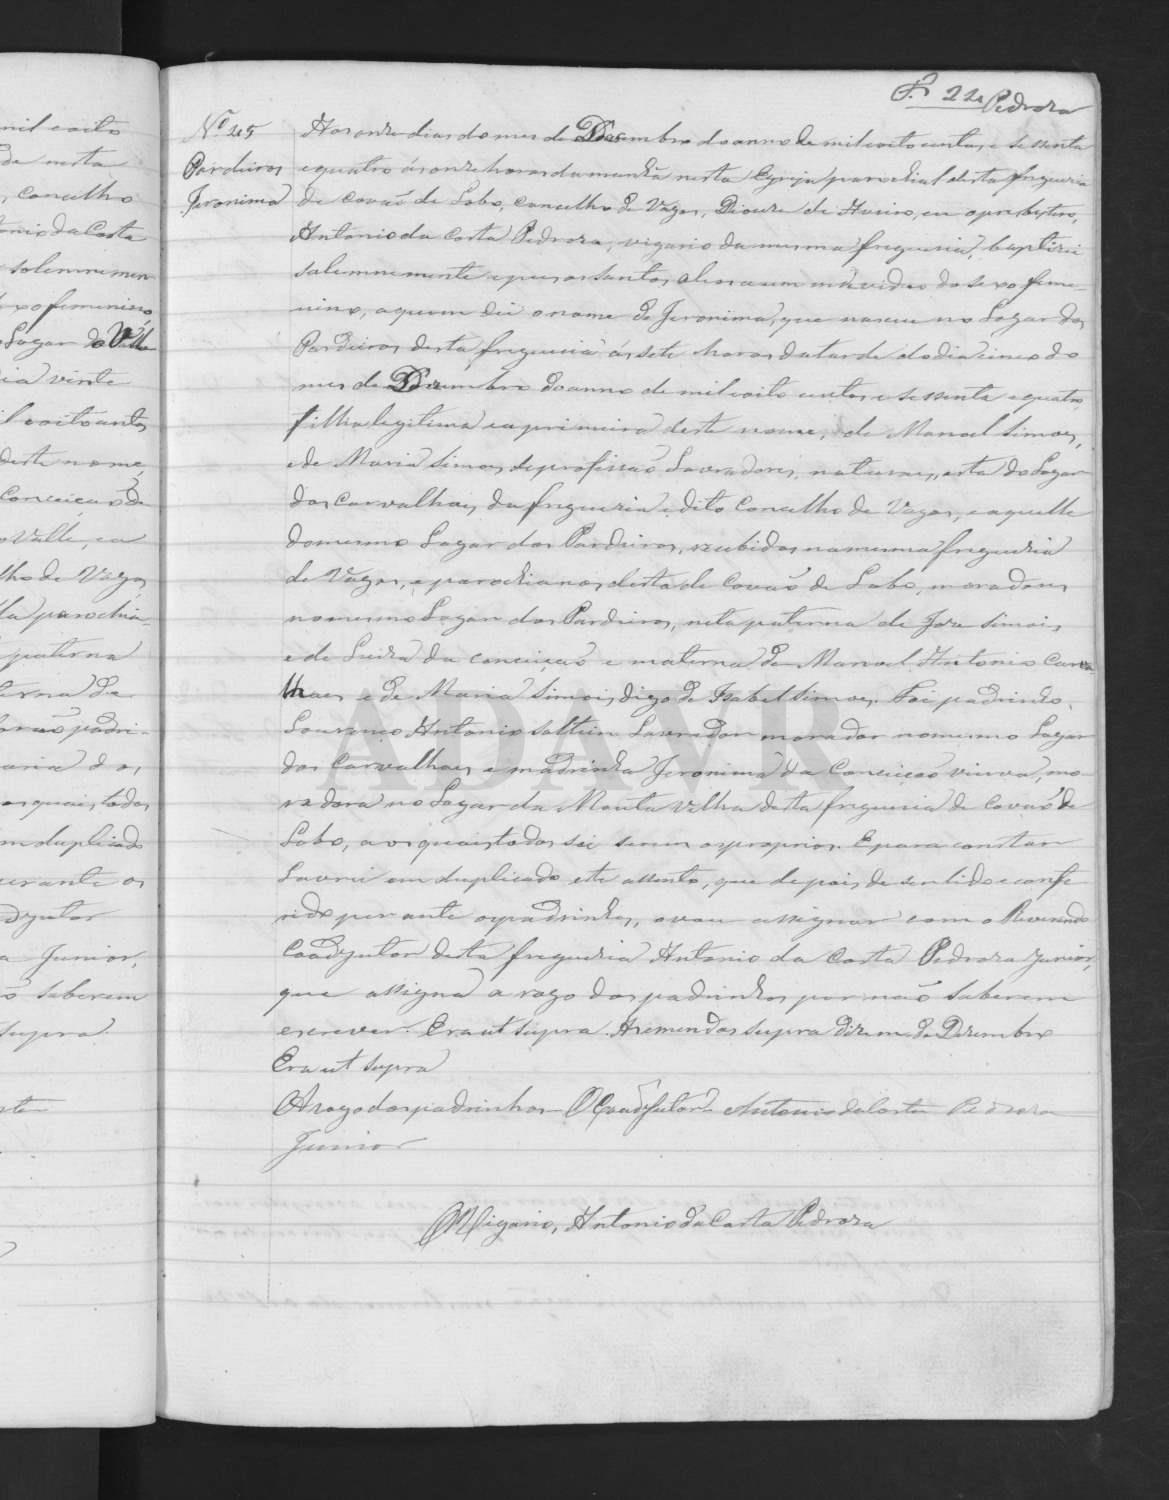 mil oito
de nesta
concelho
Antonio da Costa
solemnemen
sexo feminino
Lugar do Valle
dia vinte
mil oitocentos
deste nome,
Conceição de
Valle, e a
lho de Vagos
parochia
paterna
terna de
padri-
os quais todos
em duplicado
perante os
djutor
Junior,
não saberem
supra
Fl. 22 Pedroza
Nº 45
Pardieiros
Jeronima
Aos onze dias do mes de Dezembro do anno de mil oito centos e sessenta
e quatro ás onze horas da manhã nesta Egreja parochial desta freguezia
de Covaõ de Lobo, concelho de Vagos, Diocese de Aveiro, eu o presbytero,
Antonio da Costa Pedroza, vigario da mesma freguezia, baptizei
solemnemente e pus os santos oleos a um individuo do sexo feme-
nino, a quem dei o nome de Jeronima, que nasceu no Lugar dos
Pardieiros desta freguezia ás sete horas da tarde do dia cinco do
mes de Dezembro do anno de mil oito centos e sessenta e quatro,
filha legitima e a primeira deste nome, de Manoel Simoes,
e de Maria Simoes de profissaõ Lavradores, naturaes, esta do Lugar
dos Carvalhaes da freguezia e dito Concelho de Vagos, e aquelle
do mesmo Lugar dos Pardieiros, recebidos na mesma freguezia
de Vagos, e parochianos desta de Covaõ de Lobo, moradores
no mesmo Lugar dos Pardieiros, neta paterna de Jose Simois
e de Luiza da Conceiçaõ e materna de Manoel Antonio Carva-
lhaes e de Maria Simois, digo de Isabel Simoes. Foi padrinho,
Lourenço Antonio Lavrador morador no mesmo Lugar
dos Carvalhaes e madrinha Jeronima da Conceiçaõ viuva, mo-
radora no Lugar da Mouta velha desta freguezia de Covaõ de
Lobo, aos quais todos sei serem os proprios. E para constar
Lavrei em duplicado este assento, que depois de ser lido e confe
rido perante os padrinhos, o vou assignar com o Reverendo
Coadjutor desta freguezia Antonio da Costa Pedroza Junior,
que assigna a rogo dos padrinhos por naõ saberem
escrever. Era ut supra. As emendas supra dizem de Dezembro
Era ut supra
A rogo dos padrinhos O Coadjutor Antonio da Costa Pedroza
Junior
O Vigario, Antonio da Costa Pedroza
ADAVR